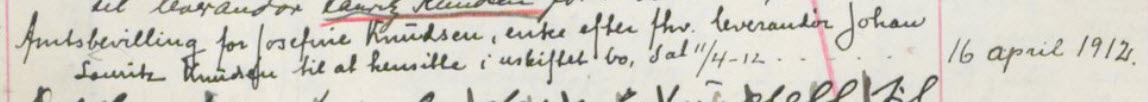 til leverandør Lauritz Knudsen
Amtsbevilling for Josefine Knudsen, enke efter fhv. leverandør Johan
Lauritz Knudsen til at hensitte i uskiftet bo, dat 11/4-12 . . . . . 16 april 1912.